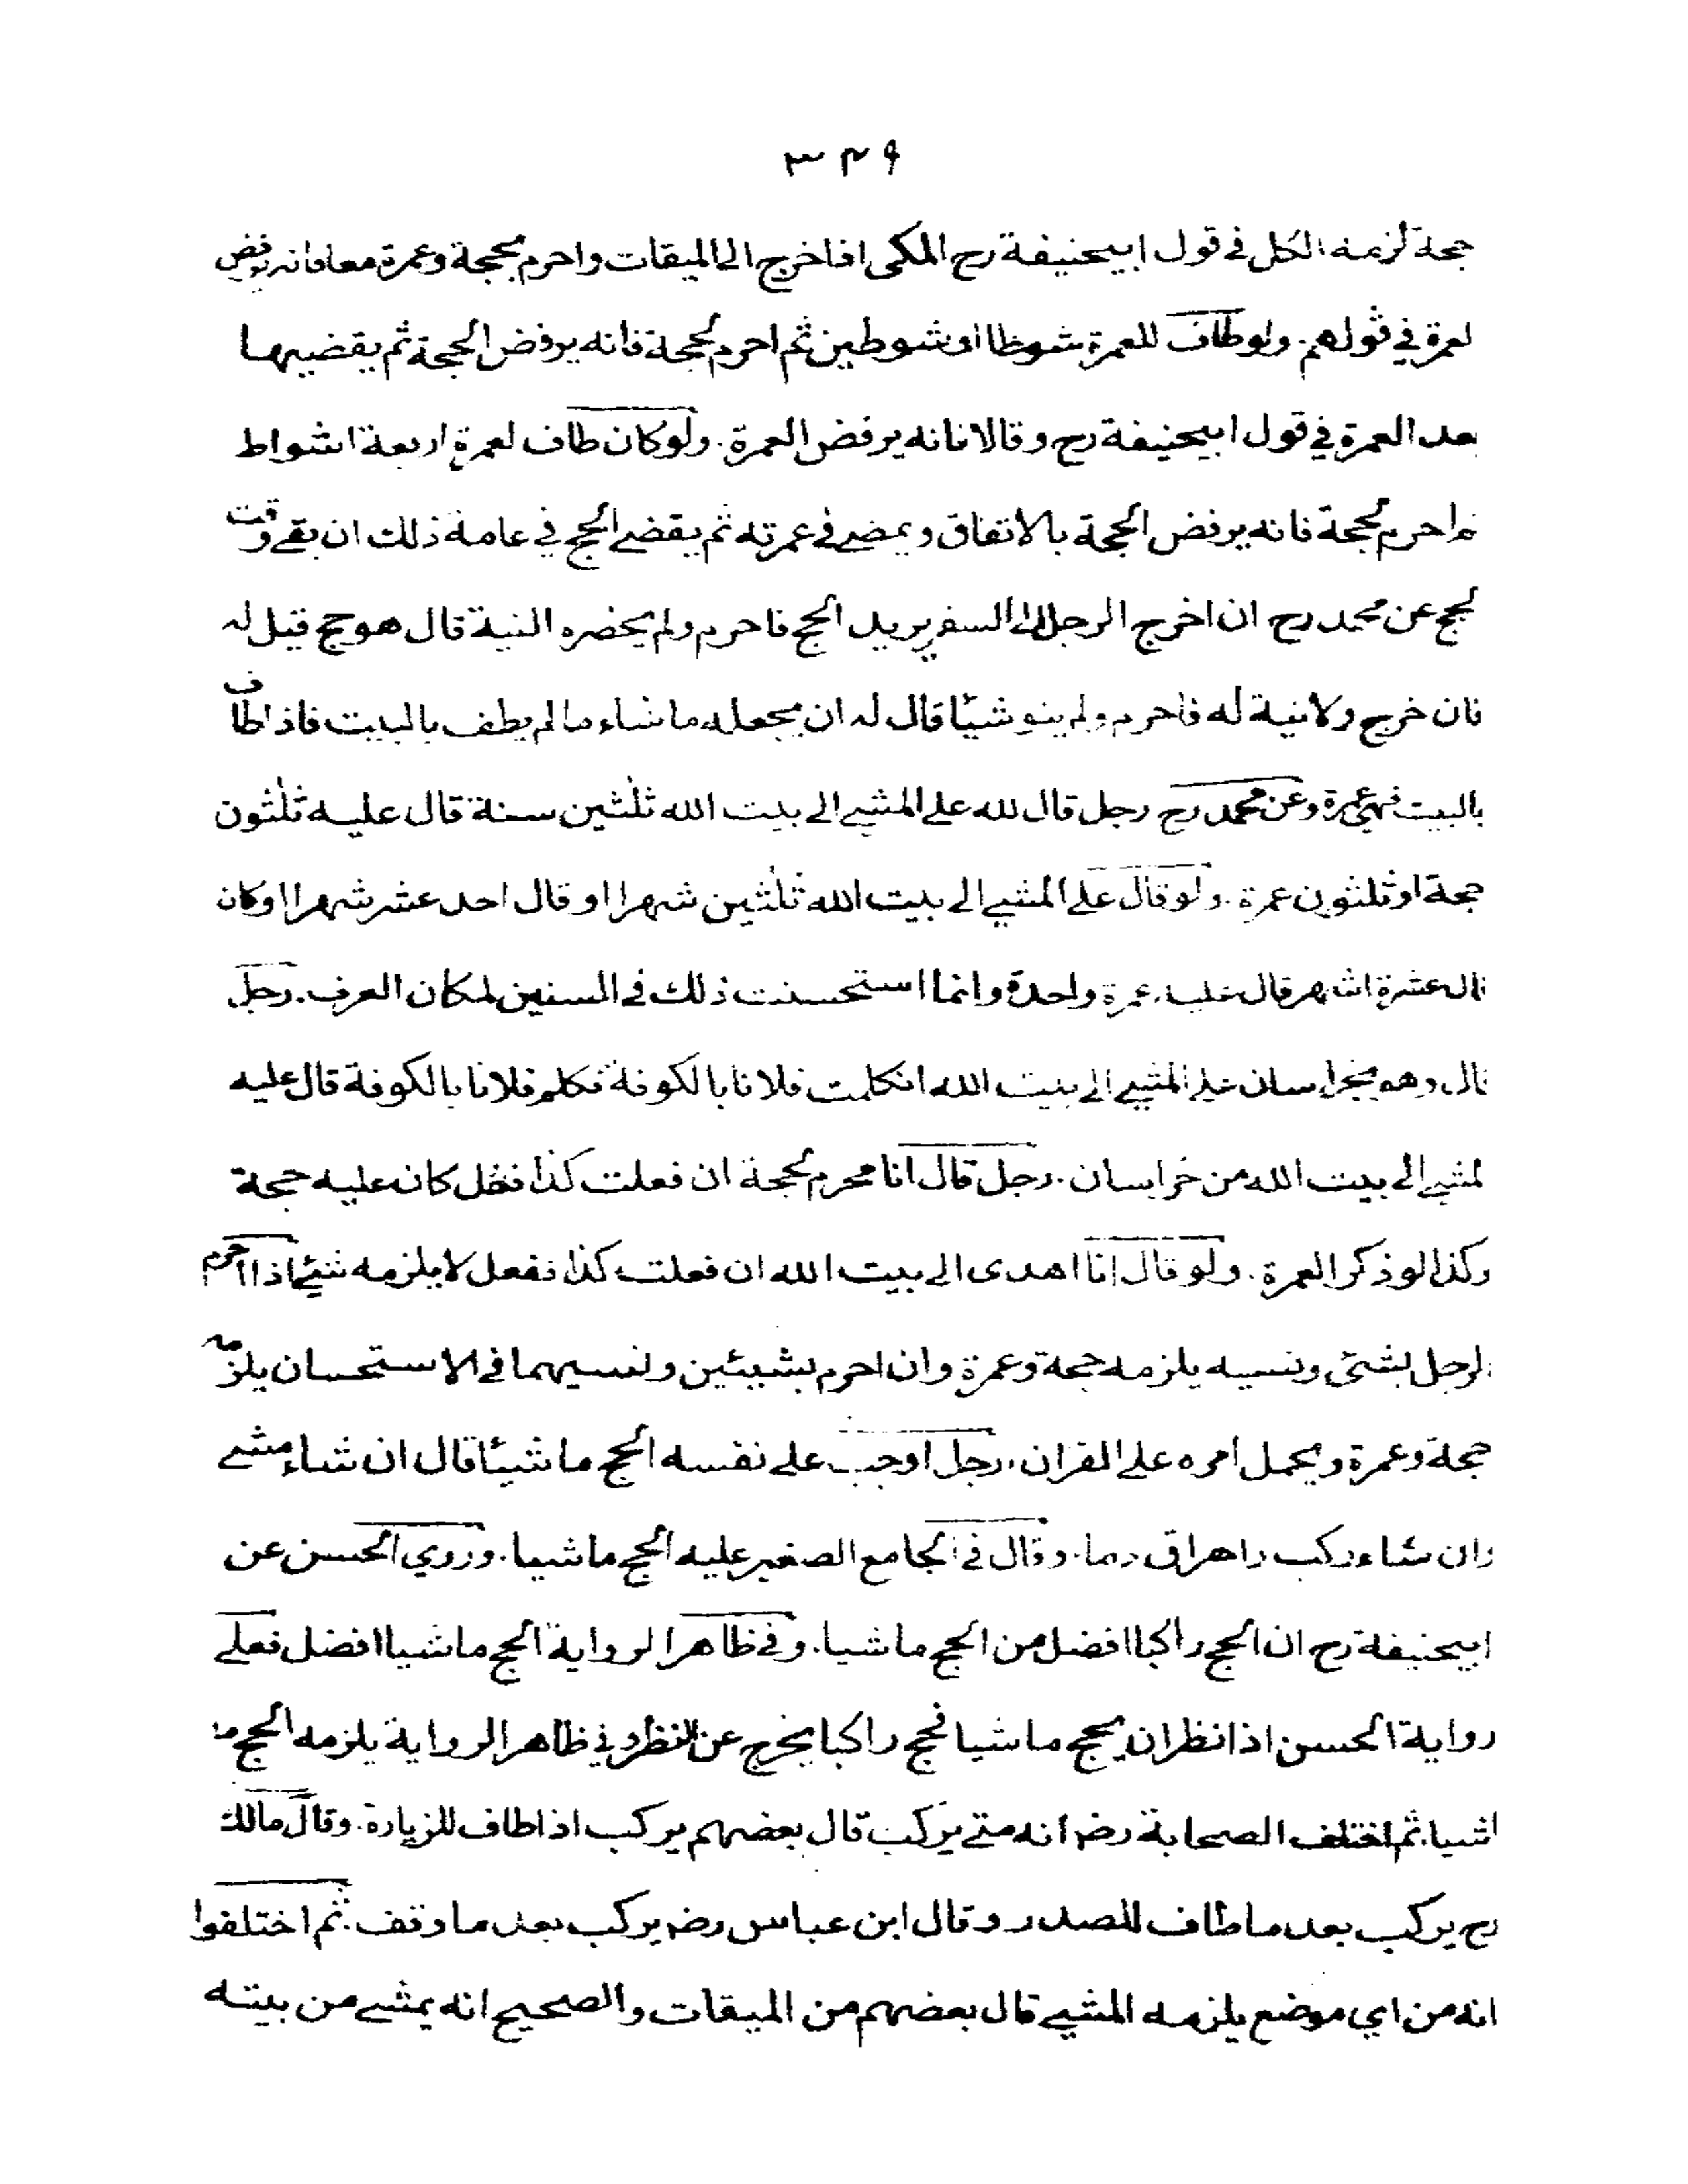 ٣٤٩
حجة لزمه الكل في قول ابيحنيفة رح المكى اذا خرج الى الميقات واحرم بحجة وعمرة معا فانه يرفض
لعمرة في قولهم. ولو طاف للعمرة شوطا او شوطين ثم احرم بحجة فانه يرفض الحجة ثم يقضيها
بعد العمرة في قول ابيحنيفة رح وقالا فانه يرفض العمرة. ولو كان طاف لعمرة اربعة اشواط
واحرم بحجة فانه يرفض الحجة بالاتفاق ويمضے في عمرته ثم يقضے الحج في عامة ذلك ان بقے وقت
لحج عن محمد رح ان اخرج الرجل الى السفر يريد الحج فاحرم ولم يحضره النية قال هو حج قيل له
فان خرج ولا نية له فاحرم ولم ينو شيئا قال له ان يجعله ما شاء ما لم يطف بالبيت فاذا طاف
بالبيت فهي عمرة وعن محمد رح رجل قال لله علے المشے الے بيت الله ثلثين سنة قال عليه ثلثون
حجة او ثلثون عمرة. ولو قال علے المشے الے بيت الله ثلثين شهرا او قال احد عشر شهرا او كان
قال عشرة اشهر قال عليه عمرة واحدة وانما استحسنت ذلك في السنين لمكان العرف. رجل
قال وهو بخراسان علے المشے الے بيت الله انكلمت فلانا بالكوفة فكلم فلانا بالكوفة قال عليه
لمشے الے بيت الله من خراسان. رجل قال انا محرم بحجة ان فعلت كذا ففعل كانه عليه حجة
وكذا لو ذكر العمرة. ولو قال انا اهدى الے بيت الله ان فعلت كذا ففعل لا يلزمه شئ اذا احرم
لرجل بشئ ونسيه يلزمه حجة وعمرة وان احرم بشيئين ونسيهما في الاستحسان يلزمه
حجة وعمرة ويحمل امره علے القران. رجل اوجب علے نفسه الحج ماشيئا قال ان شاء مشے
وان شاء ركب واهراق دما. وقال في الجامع الصغير عليه الحج ماشيا. وروي الحسن عن
ابيحنيفة رح ان الحج راكبا افضل من الحج ماشيا. وفي ظاهر الرواية الحج ماشيا افضل فعلے
رواية الحسن اذا نظر ان يحج ماشيا فحج راكبا يخرج عن النظر وفي ظاهر الرواية يلزمه الحج ما
اشيا. ثم اختلف الصحابة رضہ انه متے يركب قال بعضهم يركب اذا طاف للزيارة. وقال مالك
رح يركب بعد ما طاف للصدر وقال ابن عباس رضہ يركب بعد ما وقف. ثم اختلفوا
انه من اي موضع يلزمه المشے قال بعضهم من الميقات والصحيح انه يمشے من بيته